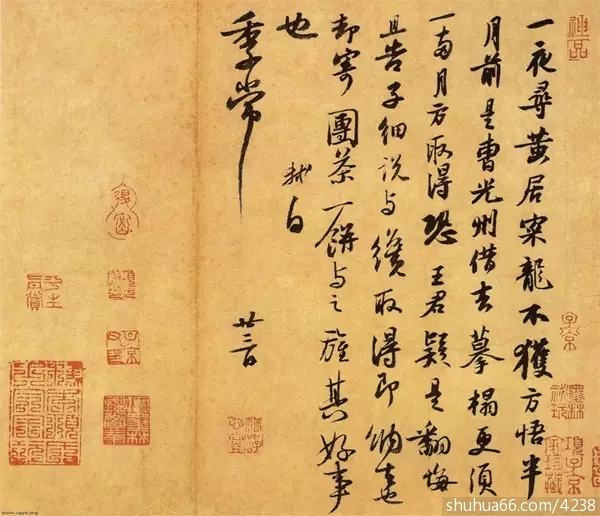 神品
一夜尋黄居寀龍不獲方悟半
月前是曹光州借去摹搨更須
一兩月方取得恐王君疑是翻悔
且告子細説与纔取得即納去也
却寄團茶一餅与之旌其好事
也
軾白
季常
廿三日
子京
項子京家珍藏
shuhua66.com/4238